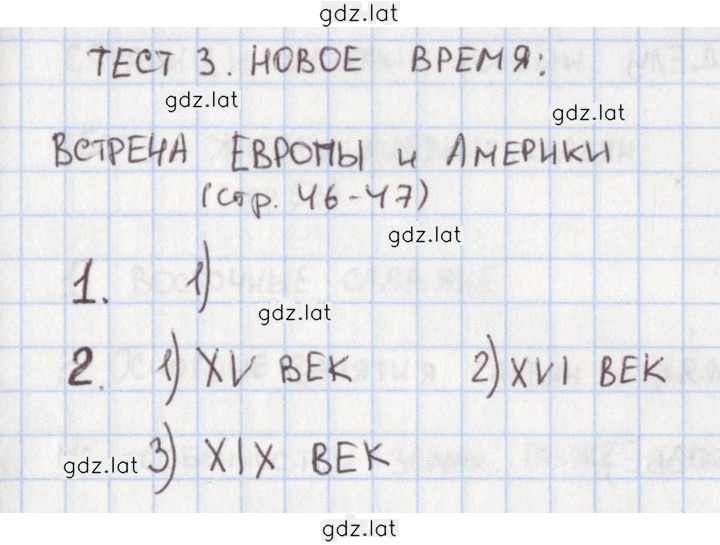 gdz.lat
ТЕСТ 3. НОВОЕ ВРЕМЯ:
gdz.lat
gdz.lat
ВСТРЕЧА ЕВРОПЫ и АМЕРИКИ
(стр. 46-47)
gdz.lat
1. 1)
gdz.lat
2. 1) XV ВЕК 2) XVI ВЕК
gdz.lat 3) XIX ВЕК
gdz.lat